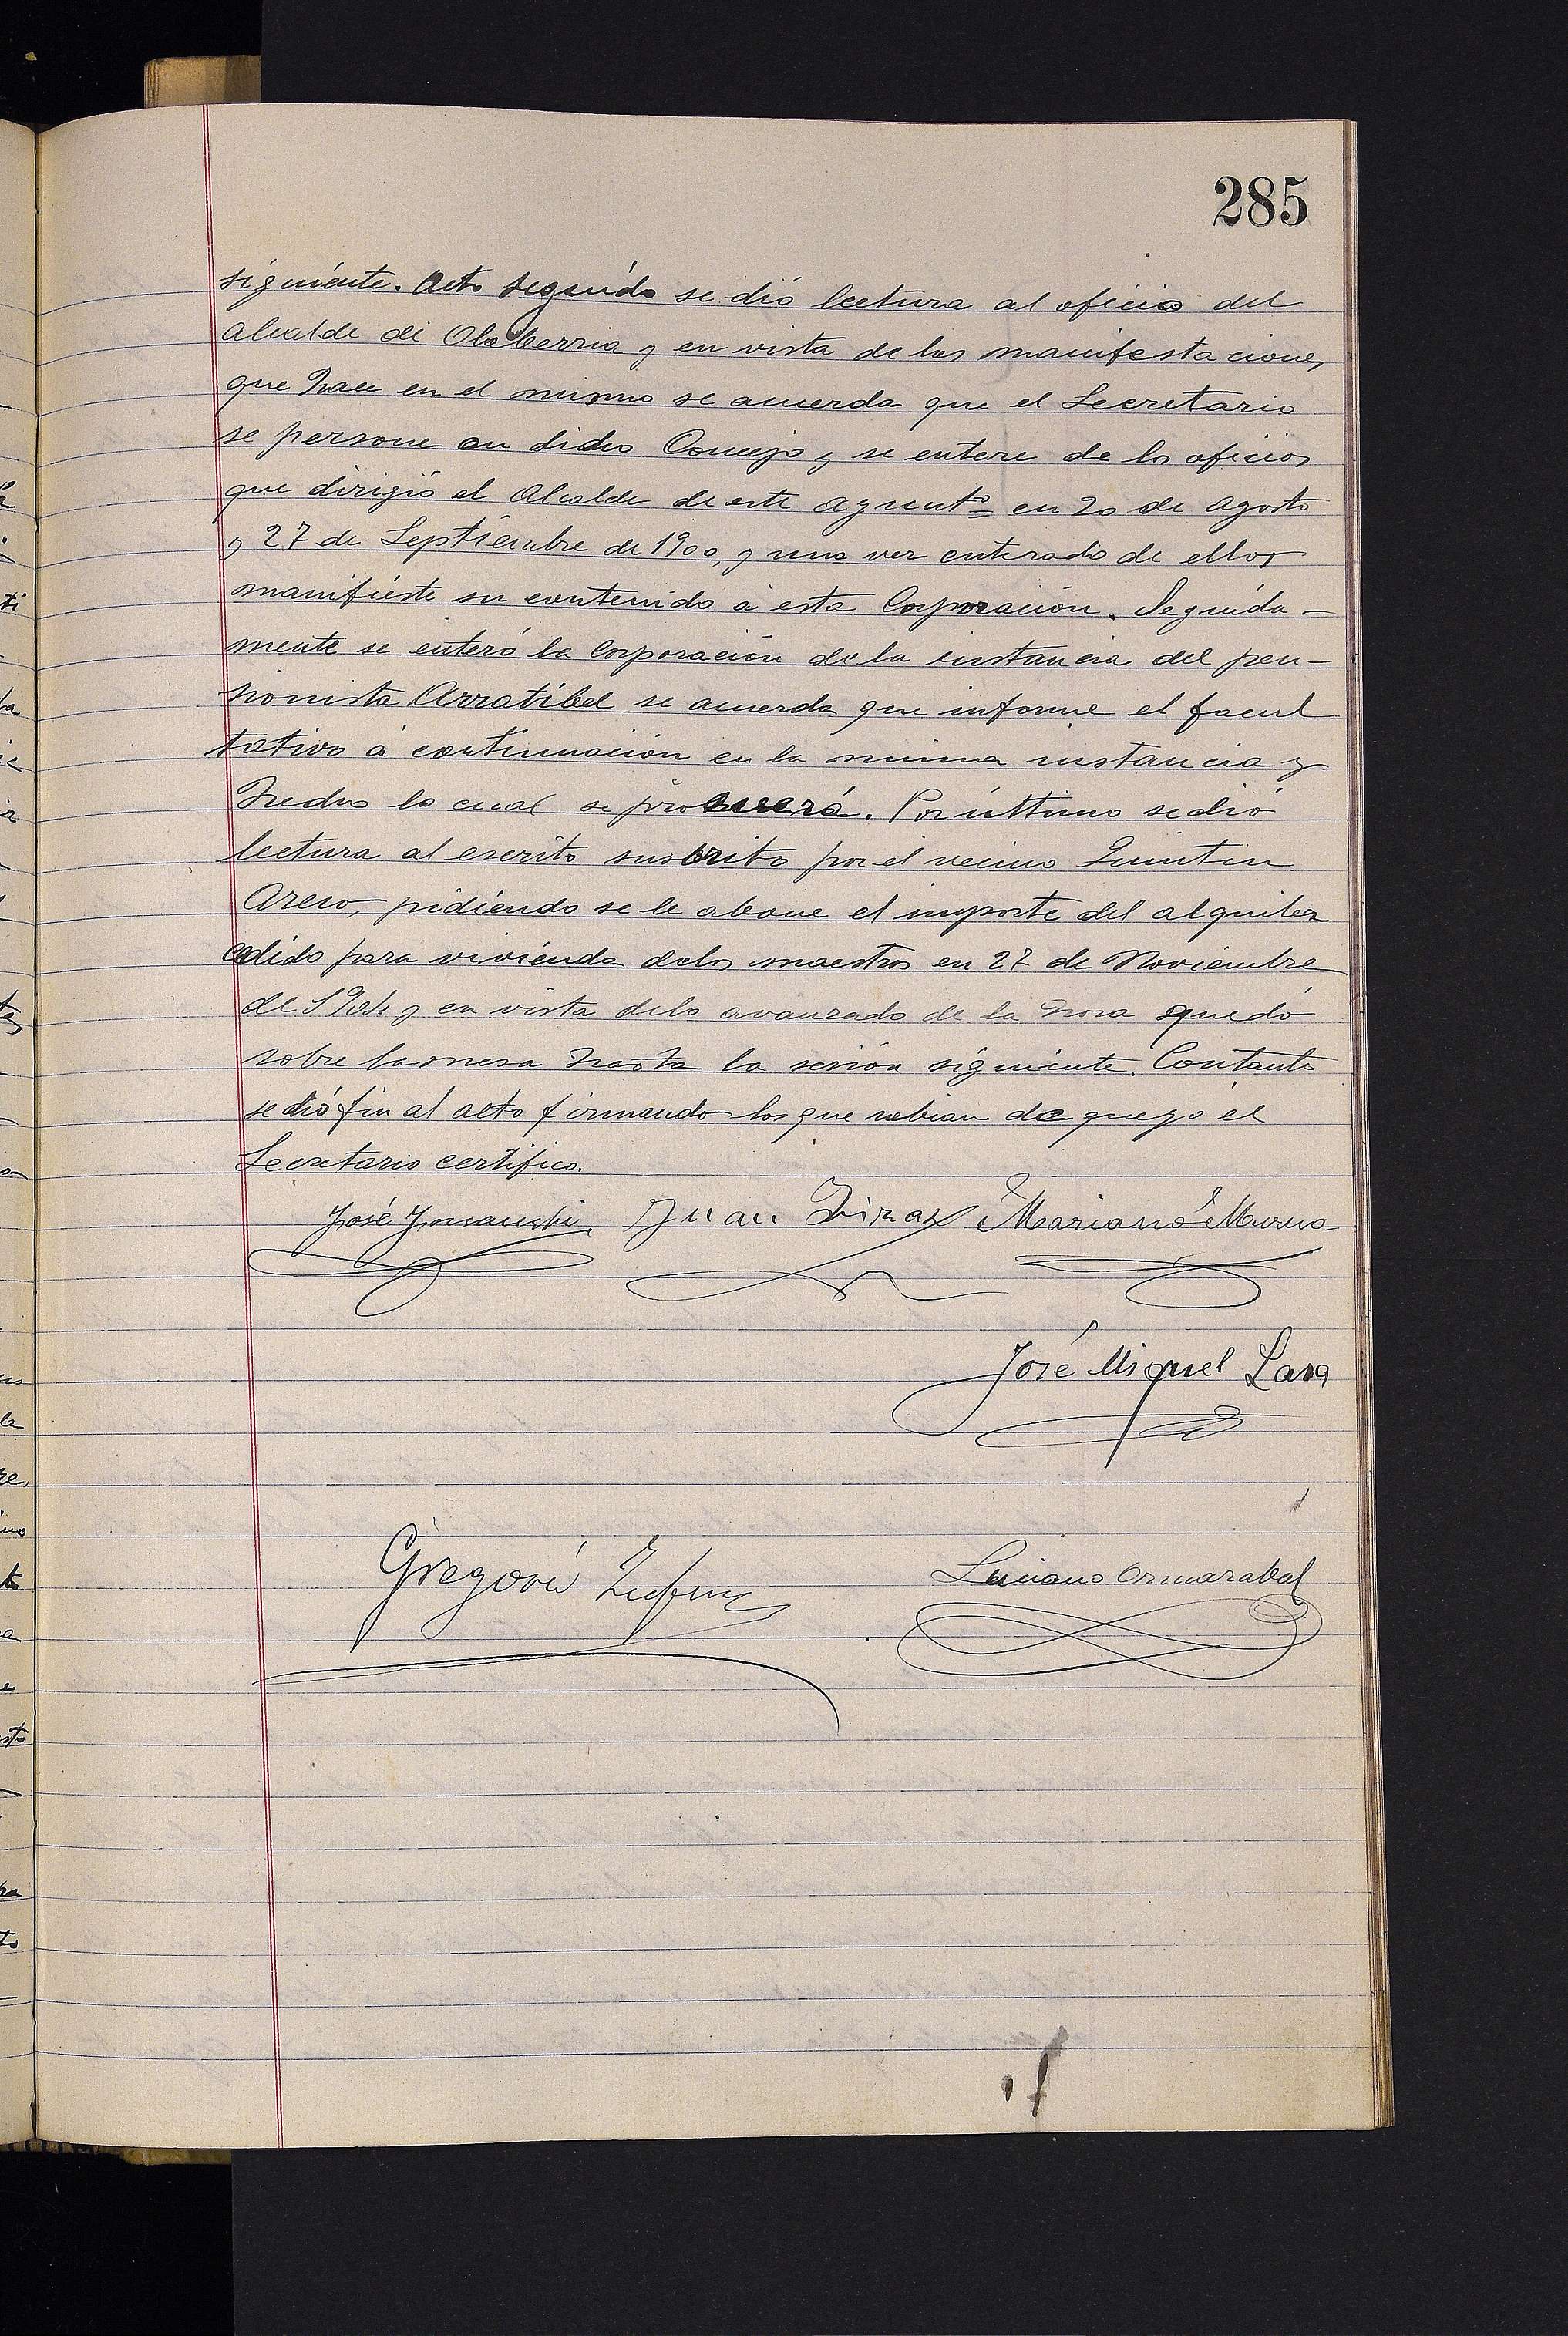 285
siguiente. Acto seguido se dió lectura al oficio del
alcalde de Olaberria y en vista de las manifestaciones
que hace en el mismo se acuerda que el Secretario
se persone en dicho Concejo y se entere de los oficios
que dirigió el Alcalde de este Ayuntº en 20 de Agosto
y 27 de Septiembre de 1900, y una vez enterado de ellos
manifieste su contenido á esta Corporación. Seguida-
mente se enteró la Corporación de la instancia del pen-
sionista Arratibel se acuerda que informe el facul
tativo á continuación en la misma instancia y
hecho lo cual se proveerá. Por último se dió
lectura al escrito suscrito por el vecino Quintin
Areso, pidiendo se le abone el importe del alquiler
cedido para vivienda de los maestros en 27 de Noviembre
de 1904 y en vista de lo avanzado de la hora quedó
sobre la mesa hasta la sesión siguiente. Con tanto
se dió fin al acto firmando los que sabian de que yo el
Secretario certifico.
José Juan Mariano Murua
José Miguel Lasa
Gregorio
Luciano Ormazabal